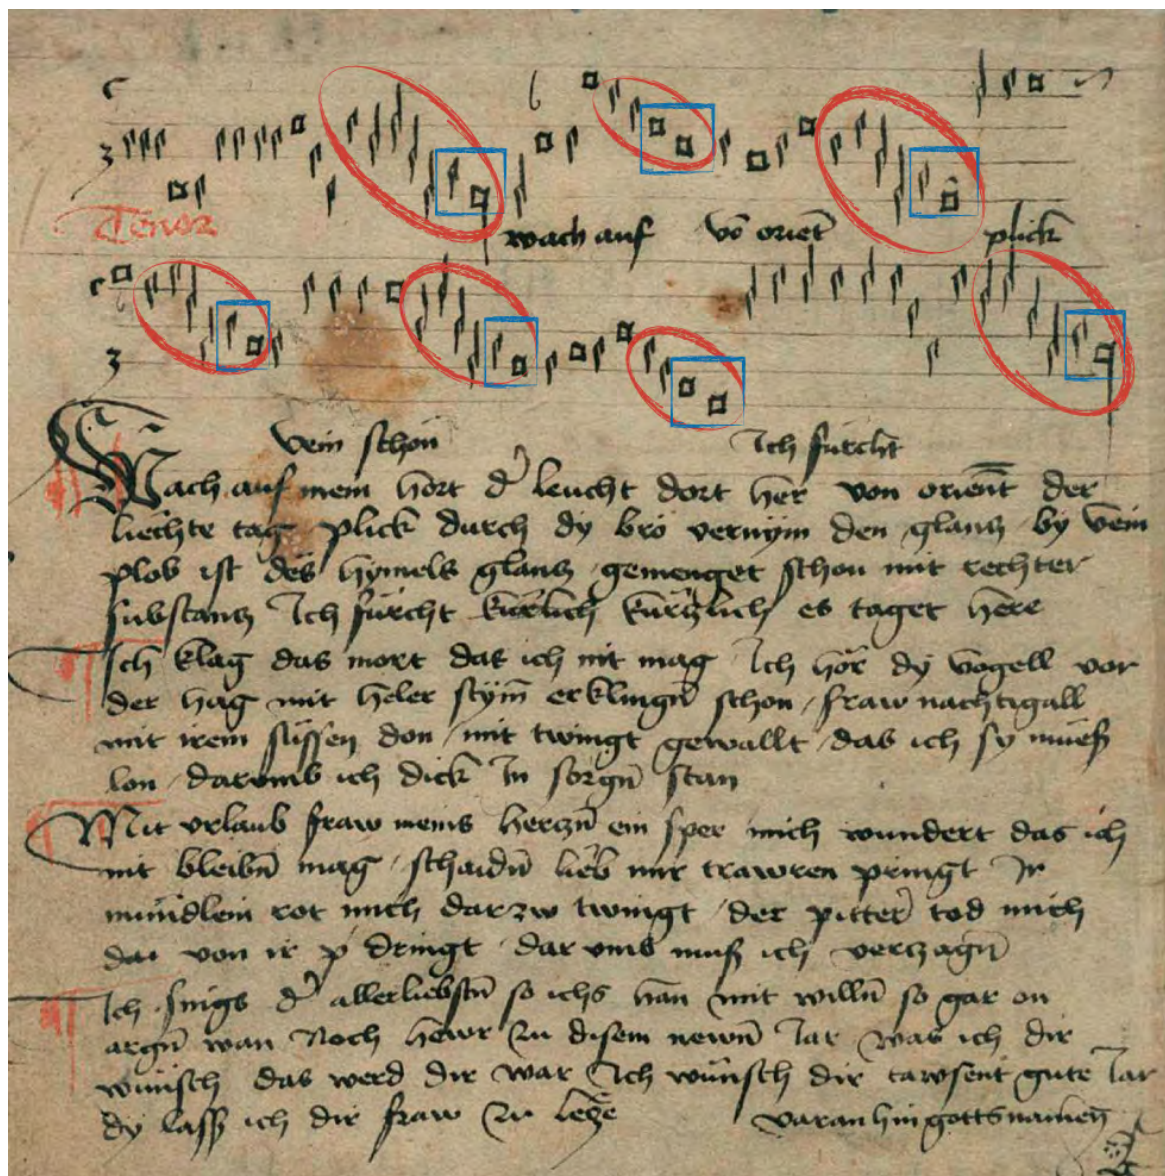 Tenor
wach auf vō oriēt plick
vein schon Ich fürcht
Wach auf mein hort d' leucht dort her von oriēnt der
liechte tag plick durch dy bro vernym den glantz by vein
plob ist des hymels glantz gemenget schon mit rechter
substantz Ich fürcht kürlich kürtzlich es taget here
Ich klag das mort das ich nit mag Ich hör dy vogell vor
der hag mit heler stym̄ erklingn̄ schon fraw nachtigall
mit irem süssen don mit twingt gewallt das ich sy mueß
lon darumb ich dick In sorgn̄ stan
Mit vrlaub fraw meins herczn̄ ein sper mich wundert das ich
nit bleibn̄ mag schaidn̄ lieb mir trawren pringt Ir
mündlein rot mich darzw twingt der pitter tod mich
von ir dringt dar vmb muß ich verzagn̄
Ich sings d' allerliebstn̄ so ichs han mit willn̄ so gar on
argn̄ wan Noch hewr zu disem newn̄ Iar was ich dir
wünsch das werd dir war Ich wünsch dir tawsent gute Iar
dy lass ich dir fraw zu letze varan hin gotts namen